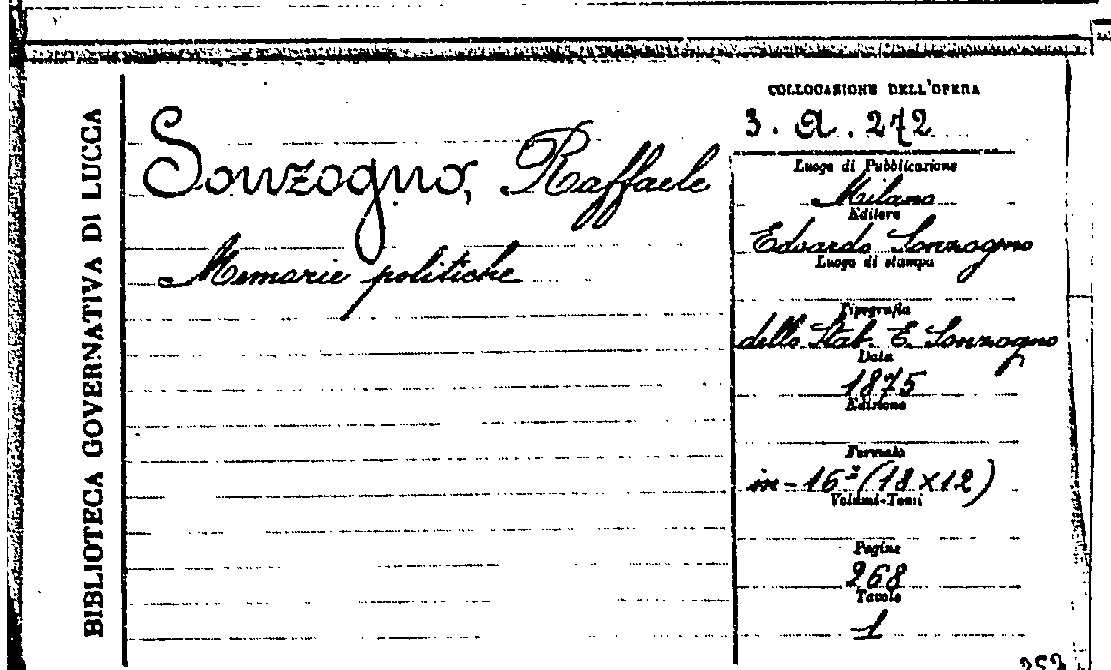 BIBLIOTECA GOVERNATIVA DI LUCCA
Sonzogno, Raffaele
Memorie politiche
COLLOCAZIONE DELL'OPERA
3. A. 272
Luogo di Pubblicazione
Milano
Editore
Edoardo Sonzogno
Luogo di stampa
Tipografia
dello Stab. E. Sonzogno
Data
1875
Edizione
Formato
in-16º (18x12)
Volumi-Tomi
Pagine
268
Tavole
1